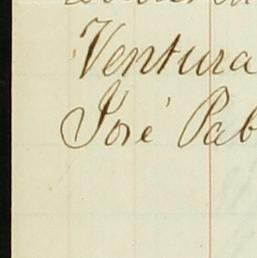 Ventura
José Pab